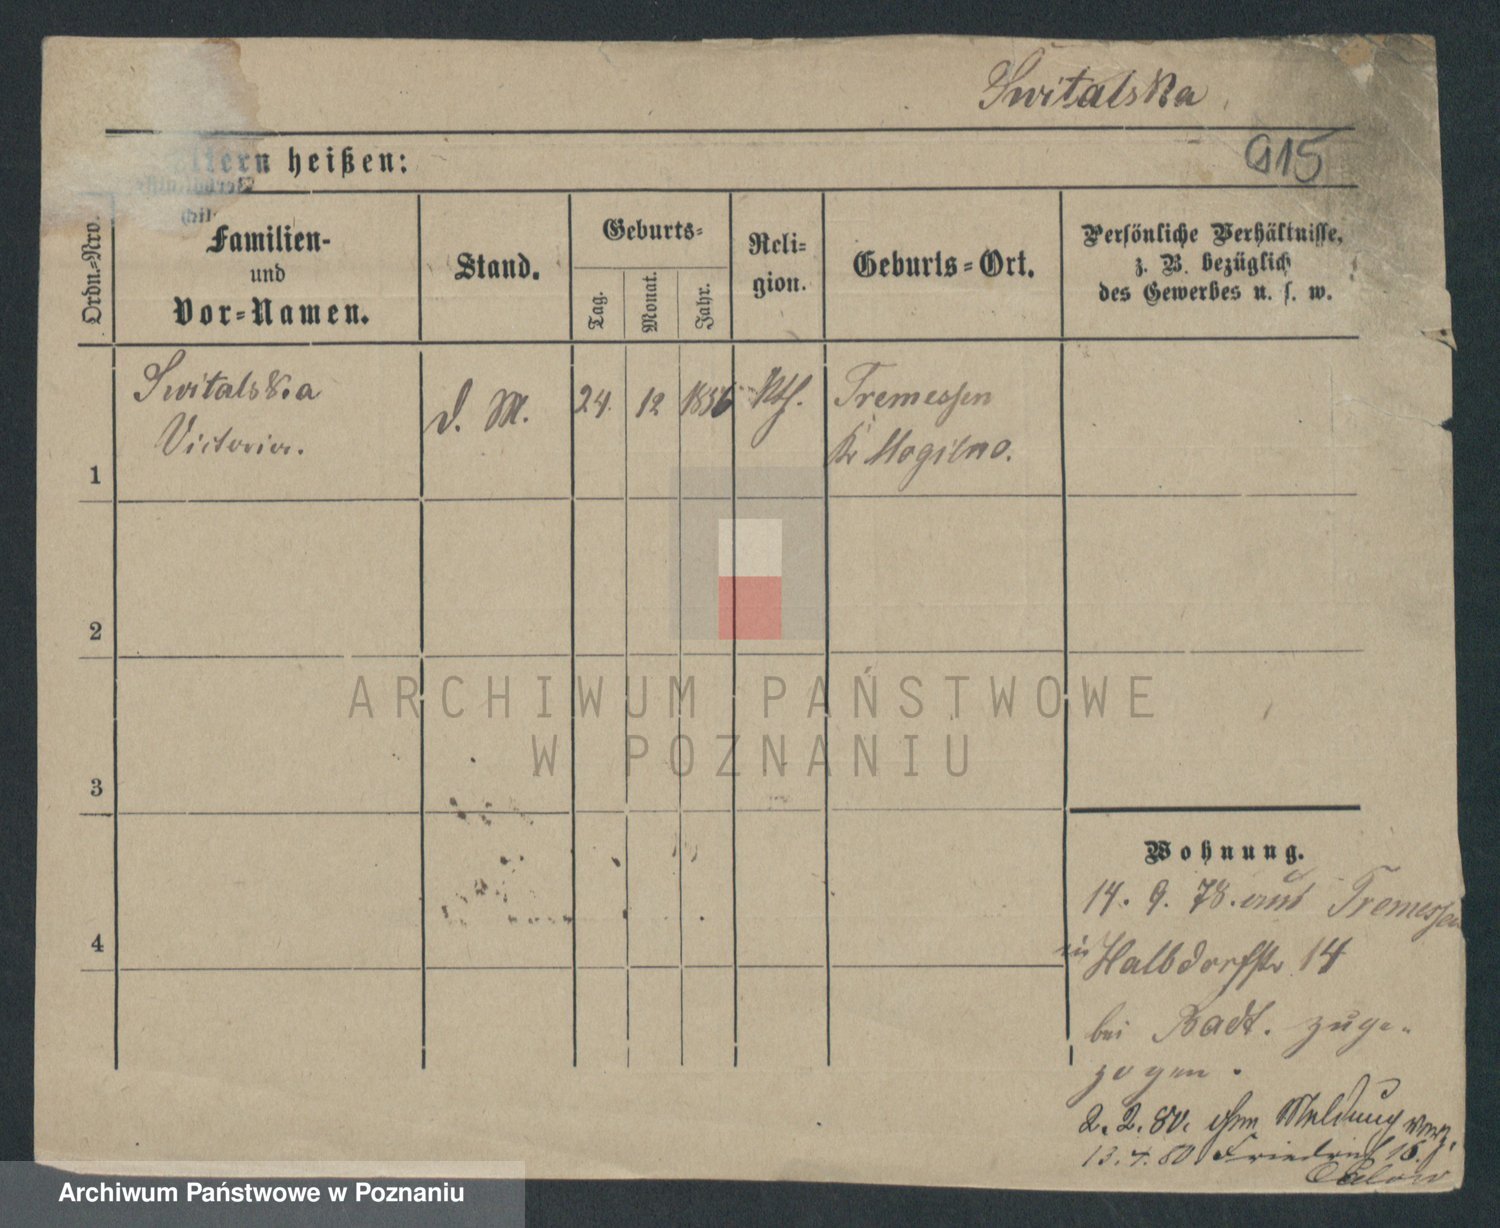 Switalska
915
Eltern heißen:
Ordn.=Nro.
Familien-
und
Vor=Namen.
Stand.
Geburts=
Tag.
Monat.
Jahr.
Reli=
gion.
Geburts=Ort.
Persönliche Verhältnisse,
z. B. bezüglich
des Gewerbes u. s. w.
1
Switalska
Victoria.
d. M.
24.
12
1856
Kth.
Tremessen
Kr Mogilno.
2
3
4
Wohnung.
14. 9. 78. aus Tremessen
in Halbdorfstr 14
bei Radt. zuge-
zogen.
2. 2. 80. ohne Meldung verz.
13. 4. 80 Friedrich 16.
ARCHIWUM PAŃSTWOWE
W POZNANIU
Archiwum Państwowe w Poznaniu